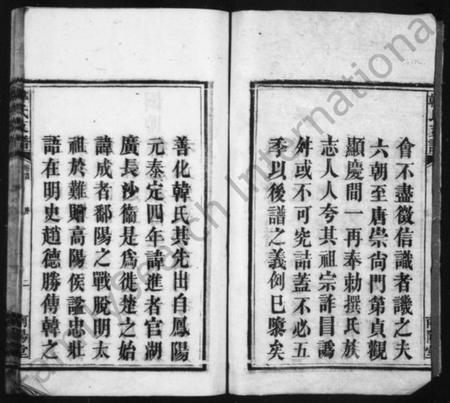 會不盡徵信識者譏之夫
六朝至唐崇尙門第貞觀
顯慶間一再奉勅撰氏族
志人人夸其祖宗詐冒譌
舛或不可究詰蓋不必五
季以後譜之義例已隳矣
善化韓氏其先出自鳳陽
元泰定四年諱進者官湖
廣長沙衞是爲徙楚之始
諱成者鄱陽之戰脫明太
祖於難贈高陽侯諡忠壯
語在明史趙德勝傳韓之
二
FamilySearch International